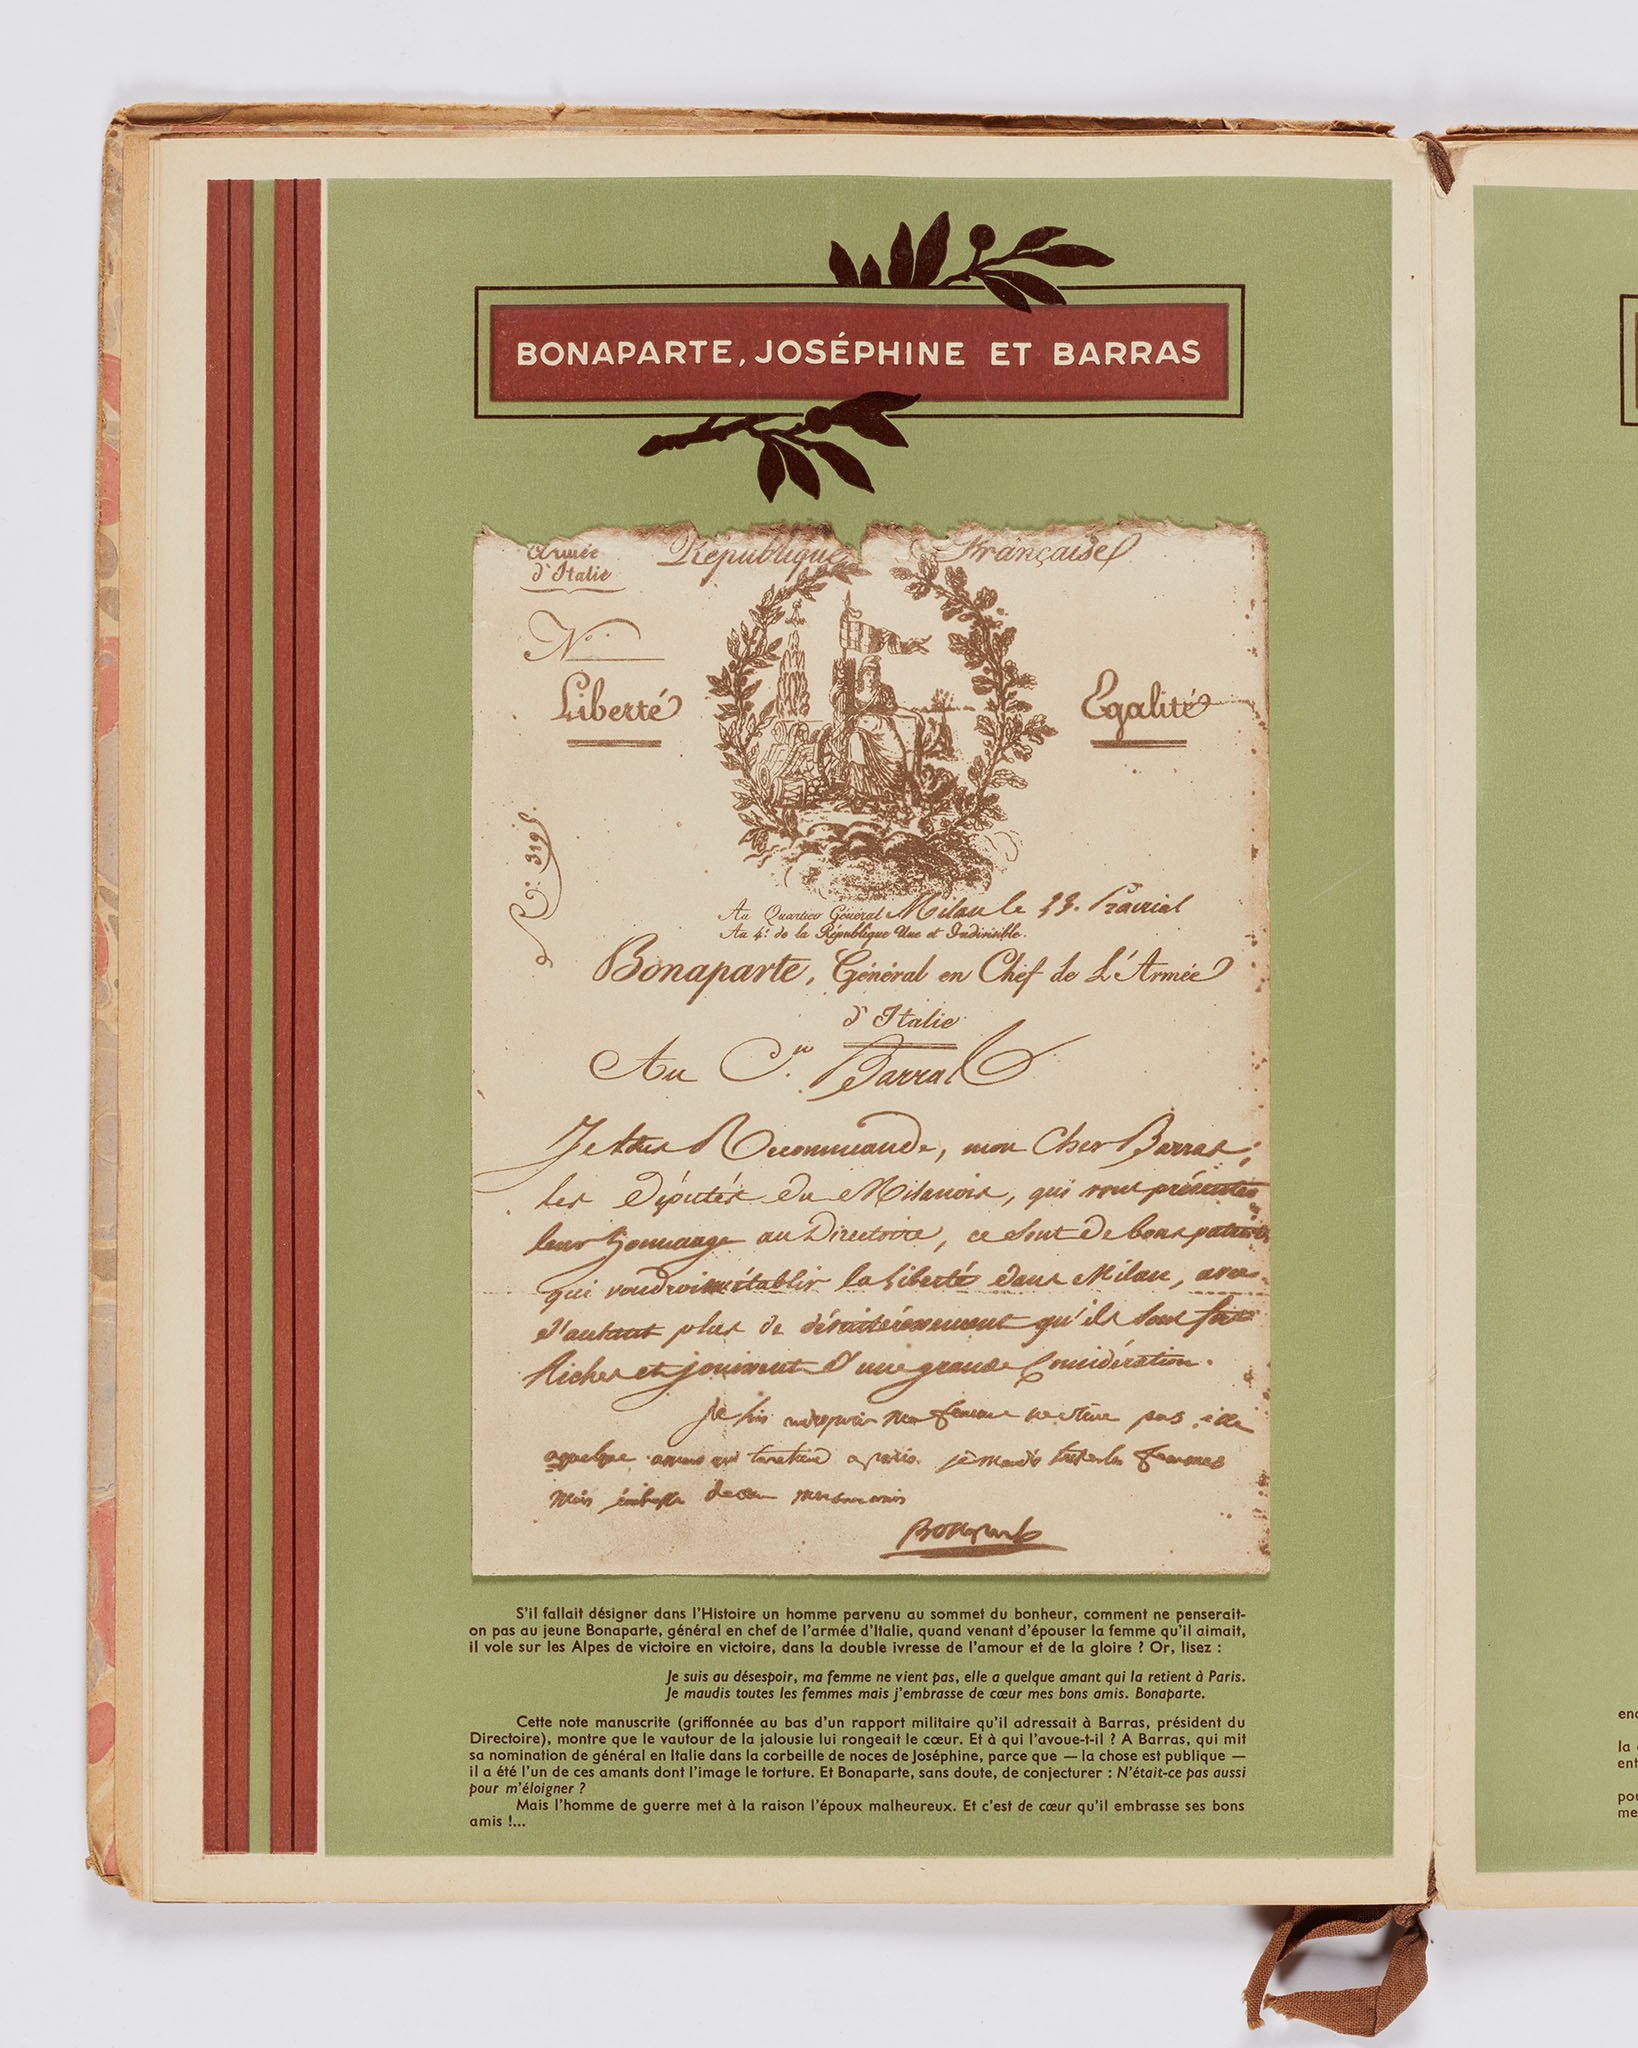 BONAPARTE, JOSÉPHINE ET BARRAS
Armée République Française
d'Italie
N°
Liberté Egalité
N°. 319
Au Quartier Général Milan le 23. Prairial
Au 4e de la République Une et Indivisible.
Bonaparte, Général en Chef de L'Armée
d'Italie
Au C.en Barras
Je vous Recommande, mon Cher Barras,
les députés du Milanois, qui vont présenter
leur hommage au Directoire, ce sont de bons patriotes
qui voudroient établir la Liberté dans Milan, avec
d'autant plus de désintéressement qu'ils sont fort
Riches et jouissent d'une grande Considération.
Je suis au desespoir ma femme ne vient pas elle
a quelque amant qui la retient a paris. je maudis toutes les femmes
mais j'embrasse de coeur mes bons amis
Bonaparte
S'il fallait désigner dans l'Histoire un homme parvenu au sommet du bonheur, comment ne penserait-
on pas au jeune Bonaparte, général en chef de l'armée d'Italie, quand venant d'épouser la femme qu'il aimait,
il vole sur les Alpes de victoire en victoire, dans la double ivresse de l'amour et de la gloire ? Or, lisez :
Je suis au désespoir, ma femme ne vient pas, elle a quelque amant qui la retient à Paris.
Je maudis toutes les femmes mais j'embrasse de cœur mes bons amis. Bonaparte.
Cette note manuscrite (griffonnée au bas d'un rapport militaire qu'il adressait à Barras, président du
Directoire), montre que le vautour de la jalousie lui rongeait le cœur. Et à qui l'avoue-t-il ? A Barras, qui mit
sa nomination de général en Italie dans la corbeille de noces de Joséphine, parce que — la chose est publique —
il a été l'un de ces amants dont l'image le torture. Et Bonaparte, sans doute, de conjecturer : N'était-ce pas aussi
pour m'éloigner ?
Mais l'homme de guerre met à la raison l'époux malheureux. Et c'est de cœur qu'il embrasse ses bons
amis !...
la